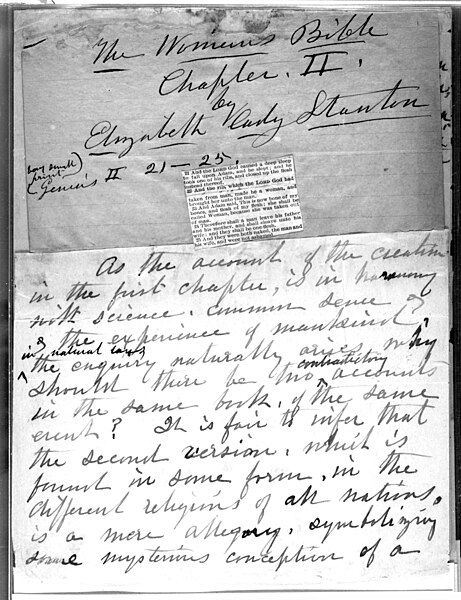 The Woman's Bible
Chapter. II.
by
Elizabeth Cady Stanton
(very small
print)
Genesis II 21–25.
21 And the LORD GOD caused a deep sleep
to fall upon Adam, and he slept; and he
took one of his ribs, and closed up the flesh
instead thereof.
22 And the rib, which the LORD GOD had
taken from man, made he a woman, and
brought her unto the man.
23 And Adam said, This is now bone of my
bones, and flesh of my flesh: she shall be
called Woman, because she was taken out
of man.
24 Therefore shall a man leave his father
and his mother, and shall cleave unto his
wife: and they shall be one flesh.
25 And they were both naked, the man and
his wife, and were not ashamed.
As the account of the creation
in the first chapter, is in harmony
with science, common sense &
& the experience of mankind
in natural laws,
the enquiry naturally arises, why
contradictory
should there be two accounts
in the same book, of the same
event? It is fair to infer that
the second version, which is
found in some form, in the
different religions of all nations,
is a mere allegory, symbolizing
some mysterious conception of a